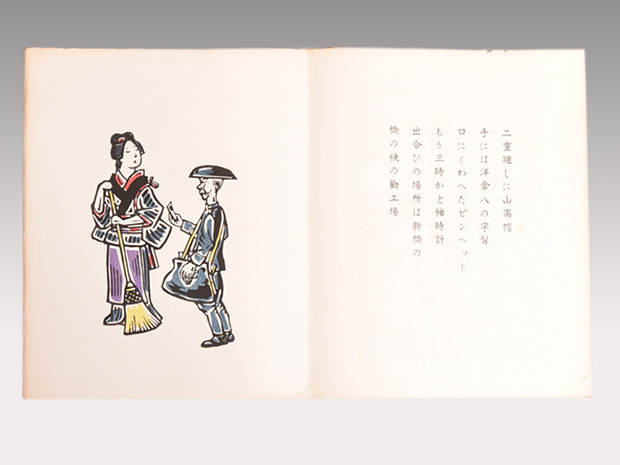 二重廻しに山高帽
手には洋傘八の字髯
口にくわへたピンヘット
もう三時かと袖時計
出合ひの場所は新橋の
橋の袂の勧工場